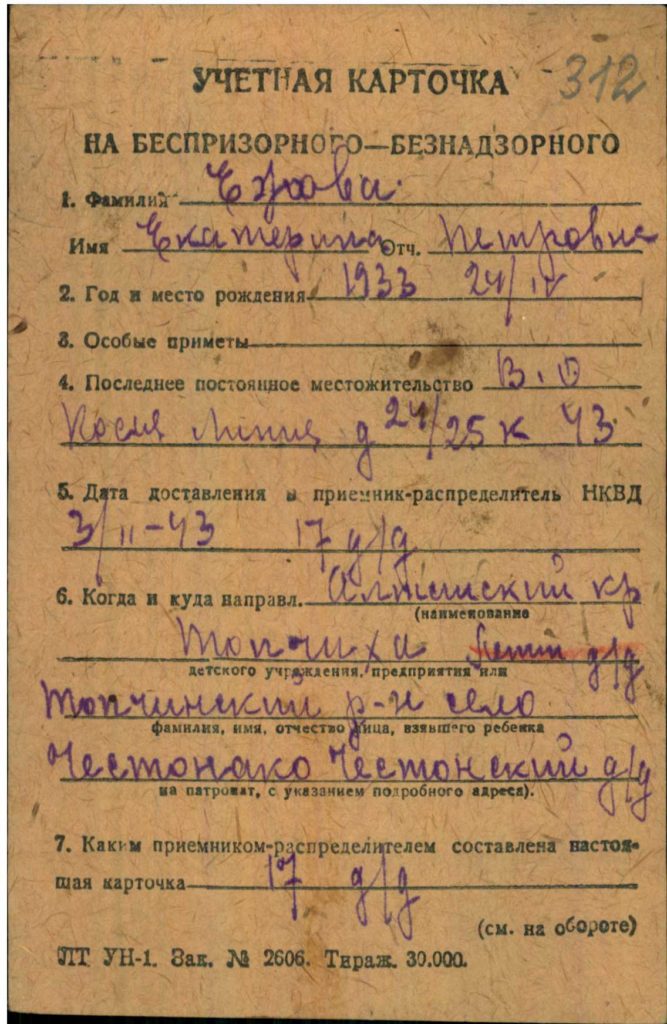 УЧЕТНАЯ КАРТОЧКА 312
НА БЕСПРИЗОРНОГО—БЕЗНАДЗОРНОГО
1. Фамилия
Имя Екатерина Отч. Петровна
2. Год и место рождения 1933 24/IV
3. Особые приметы
4. Последнее постоянное местожительство В.О
Косая линия д 24/25 к 43
5. Дата доставления в приемник-распределитель НКВД
3/II-43 17 д/д
6. Когда и куда направл. Алтайский кр
(наименование
Топчиха д/д
детского учреждения, предприятия или
Топчинский р-н село
фамилия, имя, отчество лица, взявшего ребенка
Чистонский д/д
на патронат, с указанием подробного адреса).
7. Каким приемником-распределителем составлена настоя-
щая карточка 17 д/д
(см. на обороте)
ЛТ УН-1. Зак. № 2606. Тираж. 30.000.